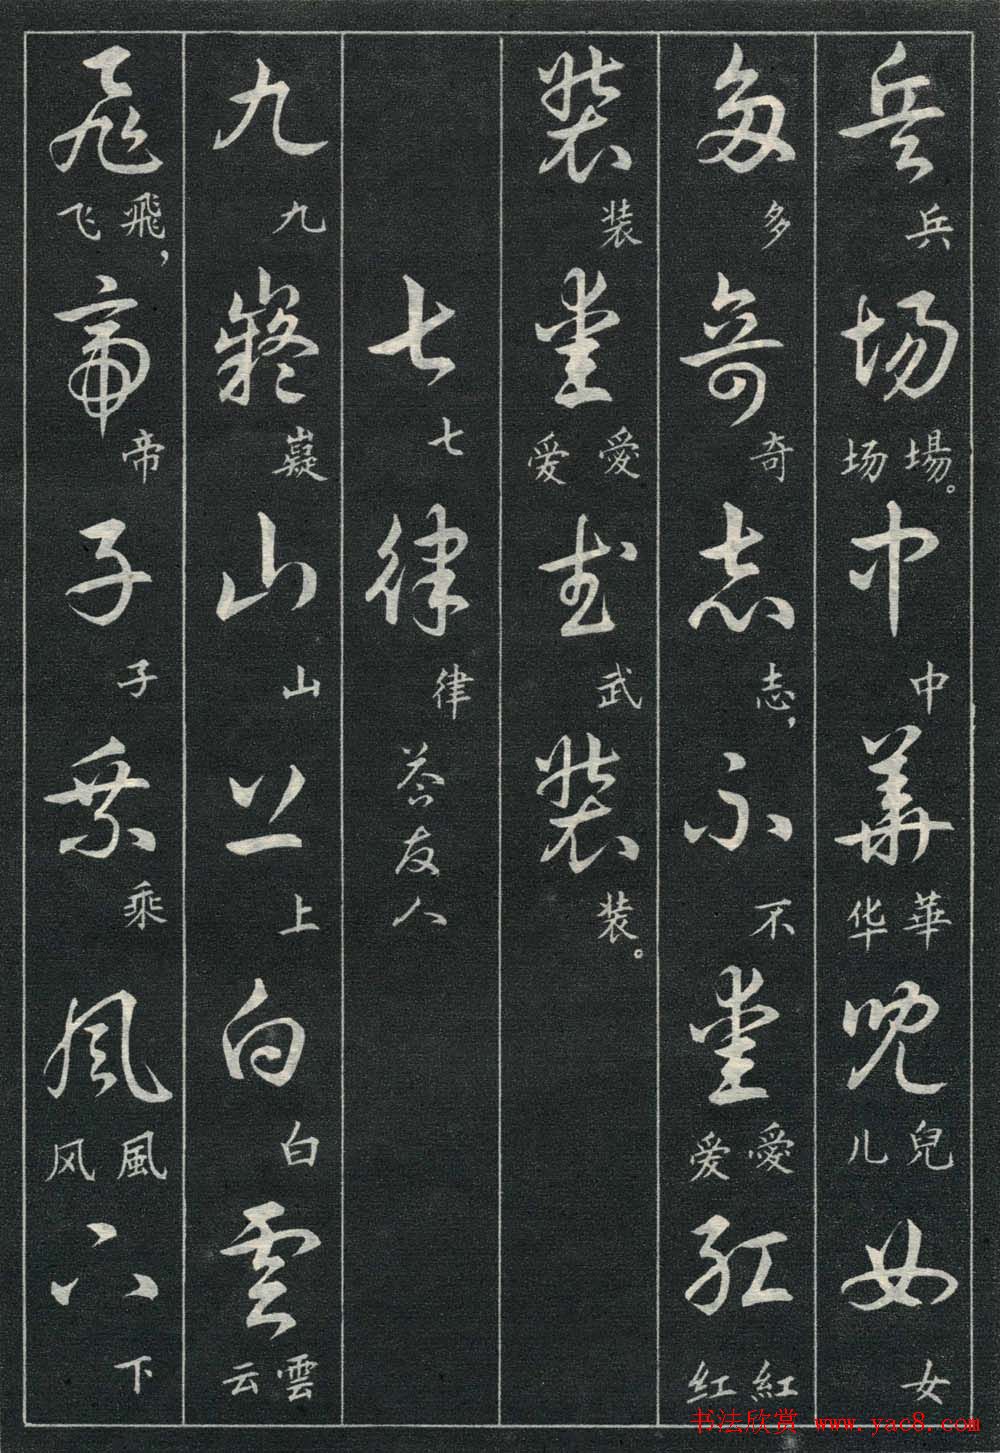 兵兵場場。场中中華華华兒兒儿女女
多多奇奇志志，不不愛愛爱紅紅红
装装愛愛爱武武装装。
七七律律答友人
九九嶷嶷山山上上白白雲雲云
飛飛，飞帝帝子子乘乘風風风下下
书法欣赏 www.yac8.com